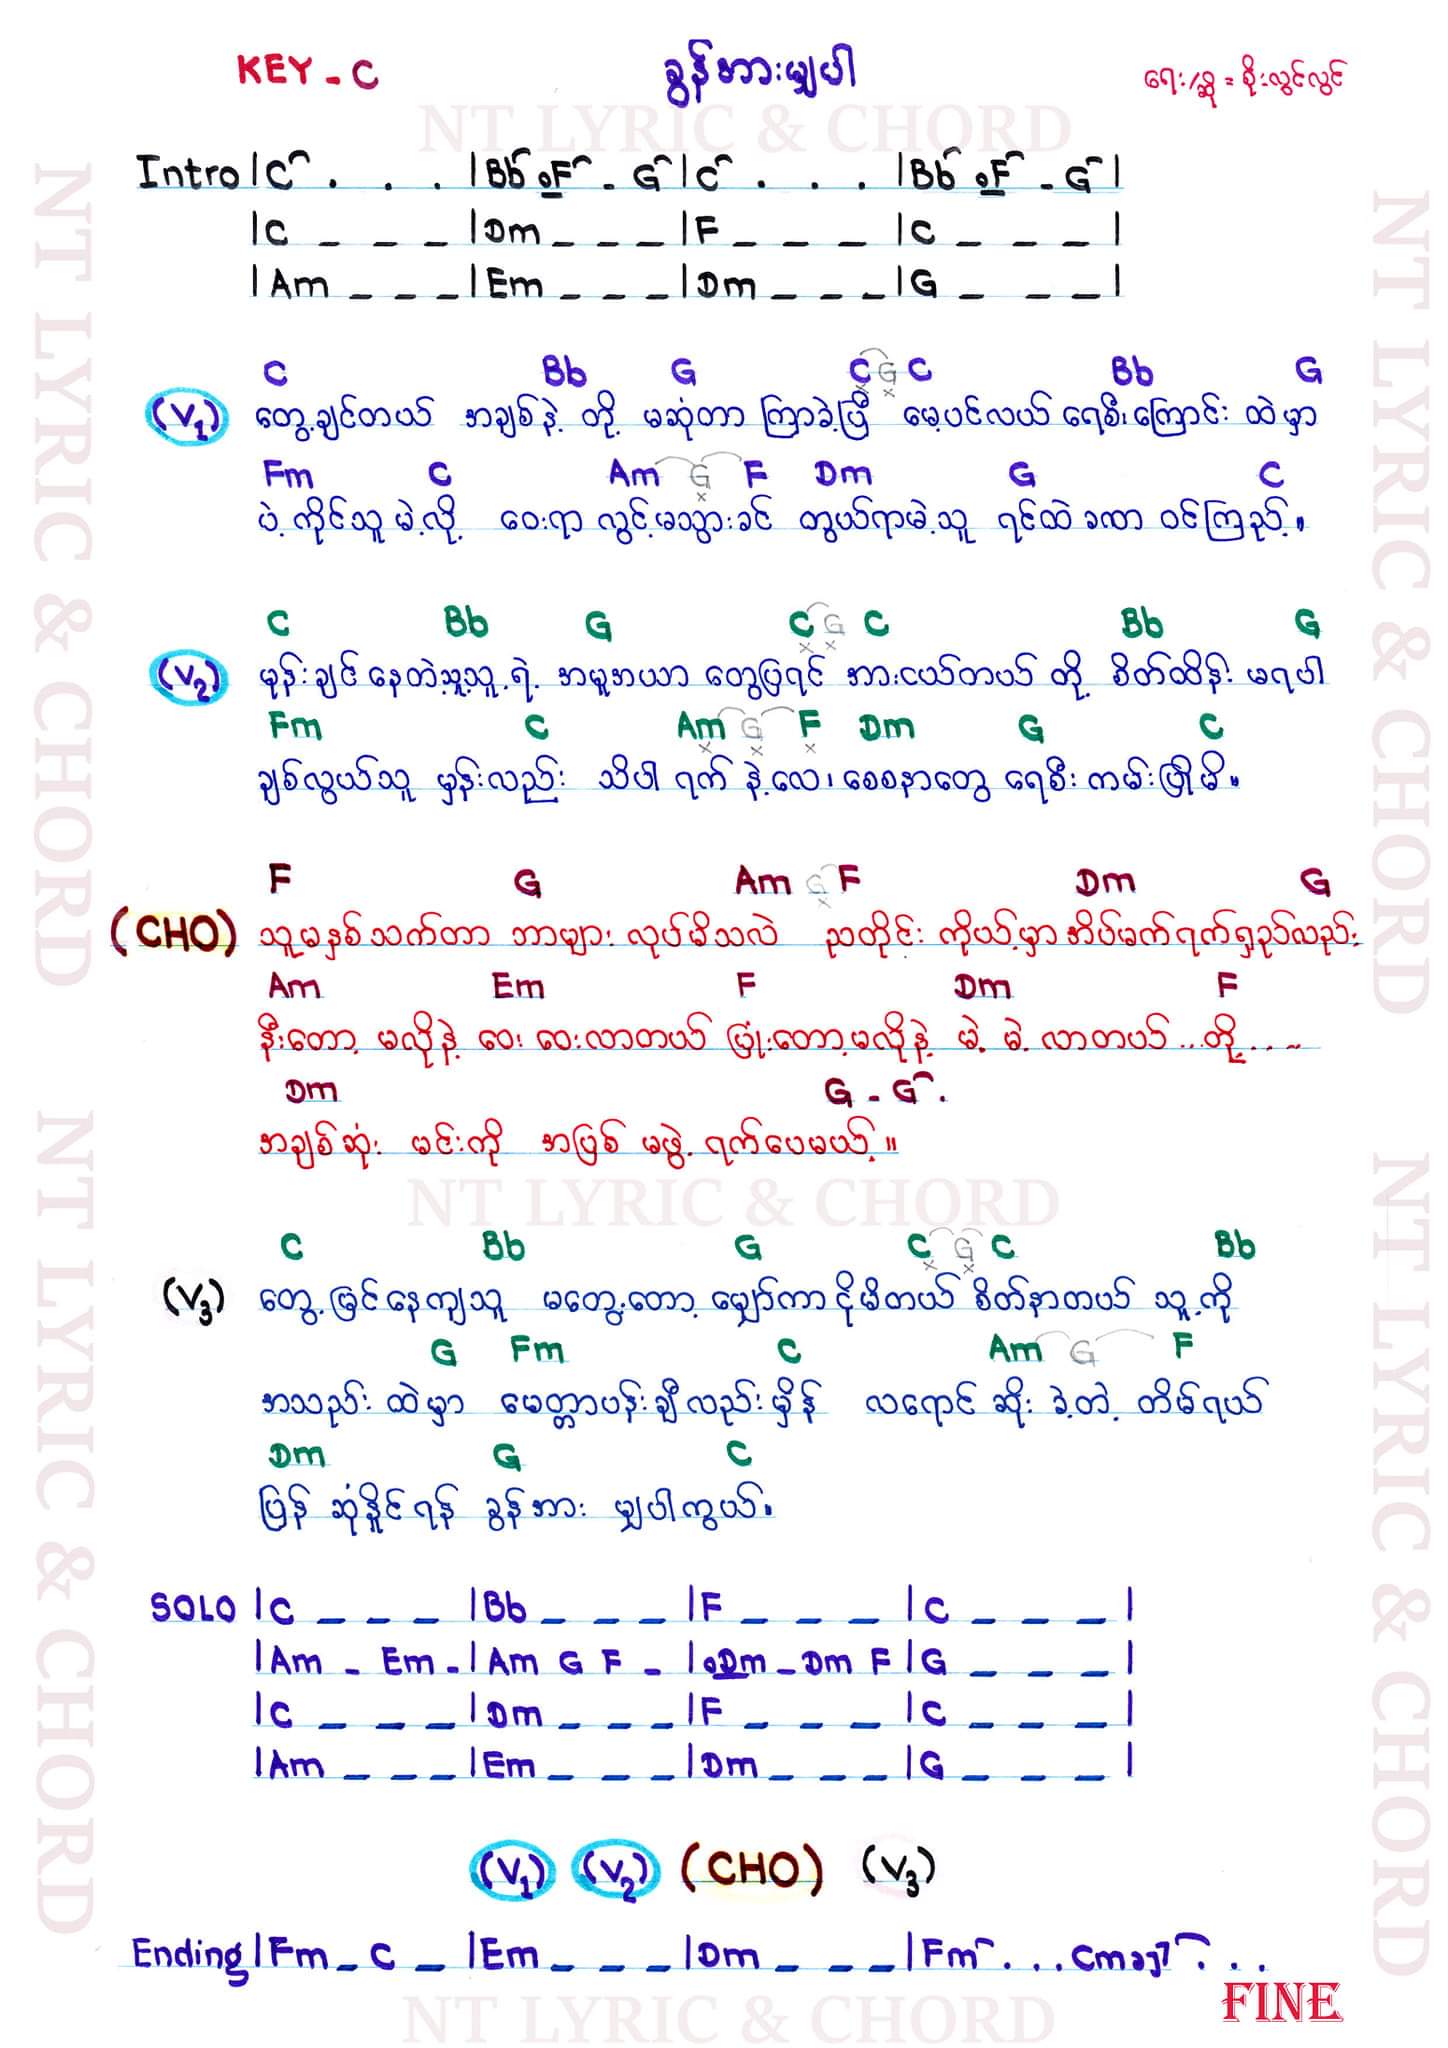 KEY - C ခွန်အားမျှပါ ရေး/ဆို = စိုးလွင်လွင်
NT LYRIC & CHORD
Intro |C . . . |Bb .F - G |C . . . |Bb .F - G |
|C _ _ _ |Dm _ _ _ |F _ _ _ |C _ _ _ |
|Am _ _ _ |Em _ _ _ |Dm _ _ _ |G _ _ _ |
C Bb G C G C Bb G
(V1) တွေ့ချင်တယ် အချစ်နဲ့ တို့ မဆုံတာ ကြာခဲ့ပြီ မေ့ပင်လယ် ရေစီးကြောင်း ထဲမှာ
Fm C Am G F Dm G C
ပဲ့ကိုင်သူ မဲ့လို့ ဝေးရာ လွင့်မသွားခင် တွယ်ရာမဲ့သူ ရင်ထဲ ခဏ ဝင်ကြည့်။
C Bb G C G C Bb G
(V2) မုန်းချင်နေတဲ့သူ့သူ့ရဲ့ အမူအယာ တွေပြရင် အားငယ်တယ် တို့ စိတ်ထိန်း မရပါ
Fm C Am G F Dm G C
ချစ်လွယ်သူ မှန်းလည်း သိပါ ရက် နဲ့လေ၊ စေစနာတွေ ရေစီး ကမ်းပြိုမိ။
F G Am G F Dm G
(CHO) သူမနှစ်သက်တာ ဘာများ လုပ်မိသလဲ ညတိုင်း ကိုယ့်မှာအိပ်မက်ရက်ရှည်လည်း
Am Em F Dm F
နီးတော့ မလိုနဲ့ ဝေး ဝေးလာတယ် ပြုံးတော့မလိုနဲ့ မဲ့ မဲ့ လာတယ် ...တို့....
Dm G - G .
အချစ်ဆုံး မင်းကို အပြစ် မဖွဲ့ ရက်ပေမယ့်။
NT LYRIC & CHORD
C Bb G C G C Bb
(V3) တွေ့မြင်နေကျသူ မတွေ့တော့ မျှော်ကာ ငိုမိတယ် စိတ်နာတယ် သူ့ကို
G Fm C Am G F
အသည်း ထဲမှာ မေတ္တာပန်းချီလည်းမှိန် လရောင် ဆိုး ခဲ့တဲ့ တိမ်ရယ်
Dm G C
ပြန် ဆုံနိူင်ရန် ခွန်အား မျှပါကွယ်။
SOLO |C _ _ _ |Bb _ _ _ |F _ _ _ |C _ _ _ |
|Am - Em - |Am G F - |.Dm - Dm F |G _ _ _ |
|C _ _ _ |Dm _ _ _ |F _ _ _ |C _ _ _ |
|Am _ _ _ |Em _ _ _ |Dm _ _ _ |G _ _ _ |
(V1) (V2) (CHO) (V3)
Ending |Fm - C - |Em _ _ _ |Dm _ _ _ |Fm . . . Cmaj7 . . .
FINE
NT LYRIC & CHORD
NT LYRIC & CHORD
NT LYRIC & CHORD
NT LYRIC & CHORD
NT LYRIC & CHORD